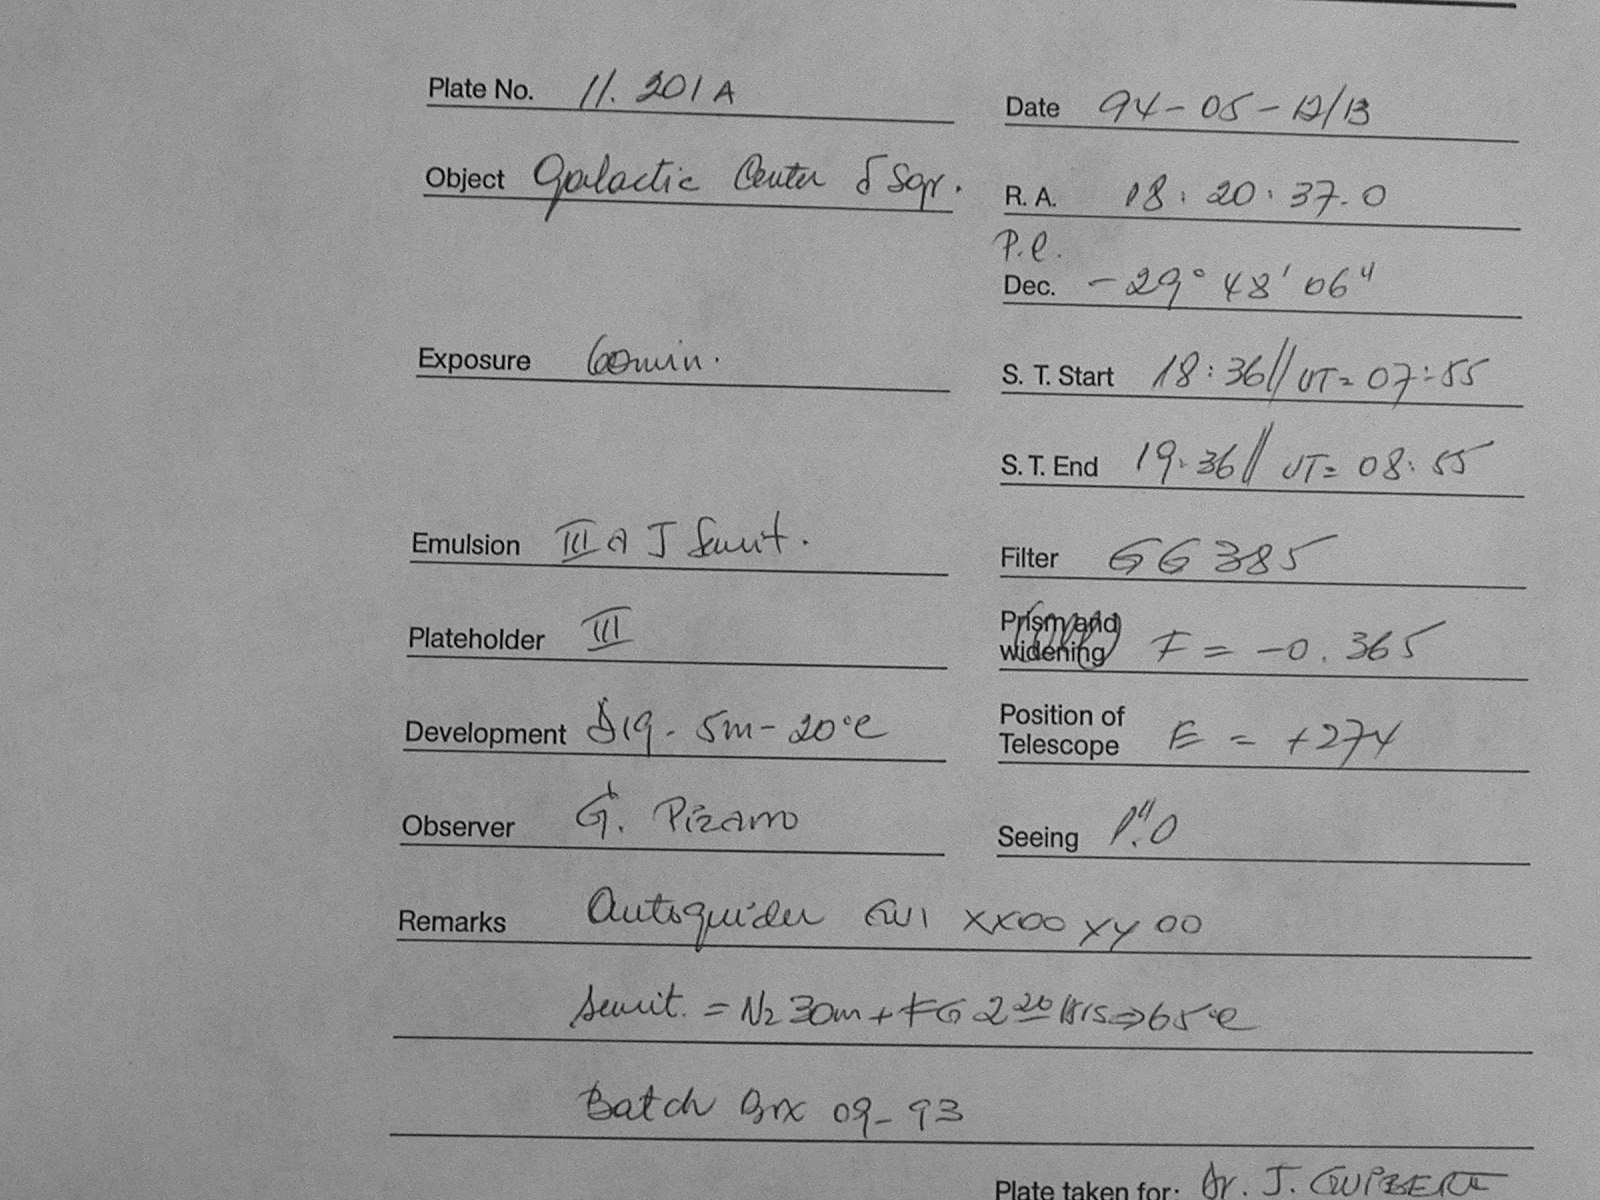 Plate No. 11.201A
Date 94-05-12/13
Object Galactic Center δ Sgr.
R. A. 18:20:37.0
P.C.
Dec. -29° 48' 06"
Exposure 60min.
S. T. Start 18:36// UT= 07:55
S. T. End 19:36// UT= 08:55
Emulsion III a J Sensit.
Filter GG385
Plateholder III
Prism and widening F = -0.365
Development D19 - 5m - 20°C
Position of Telescope E = +274
Observer G. Pizarro
Seeing 1".0
Remarks Autoguider XX00 YY00
Sensit. = N2 30m + FG 2 20 Hrs ⇒ 65°C
Batch 09-93
Plate taken for: Dr. J.